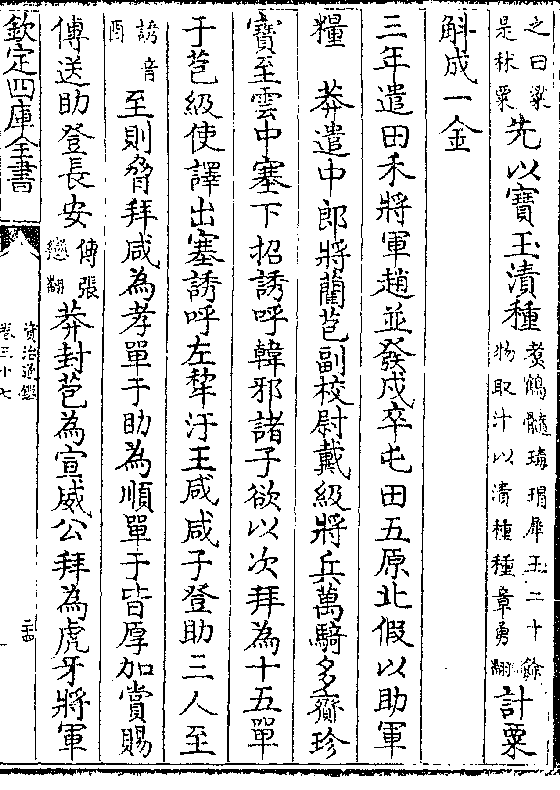 之曰粱是秫粟先以寶玉漬種煑鶴髓瑇瑁犀玉二十餘物取汁以漬種種章勇翻計粟
斛成一金
三年遣田禾將軍趙並發戍卒屯田五原北假以助軍
糧　莽遣中郎將藺苞副校尉戴級將兵萬騎多齎珍
寶至雲中塞下招誘呼韓邪諸子欲以次拜為十五單
于苞級使譯出塞誘呼左犂汙王咸咸子登助三人至
誘音酉至則脅拜咸為孝單于助為順單于皆厚加賞賜
傳送助登長安傳張戀翻莽封苞為宣威公拜為虎牙將軍
欽定四庫全書
資治通鑑
卷三十七
二十四